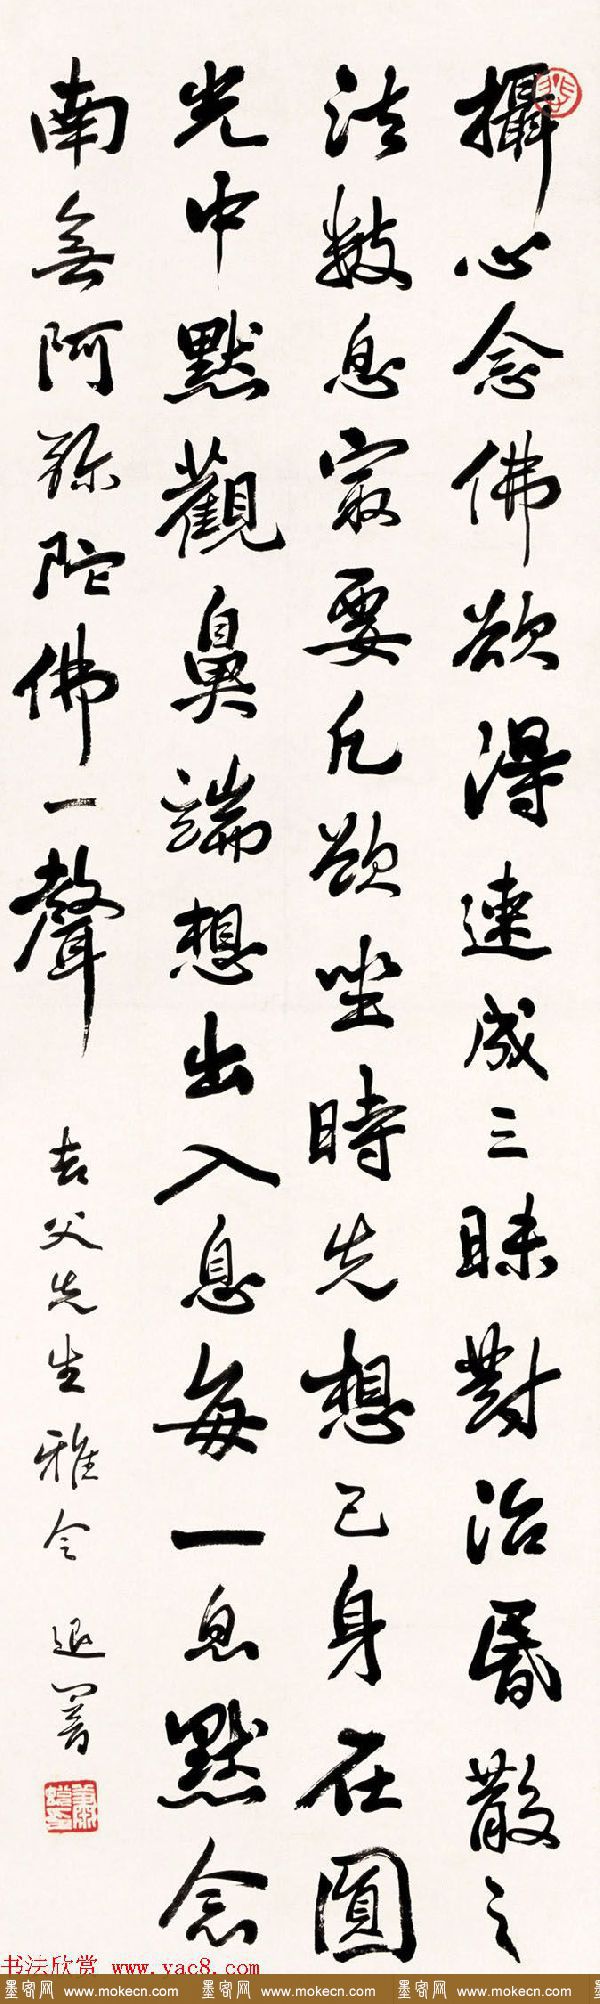 攝心念佛欲得速成三昧對治昏散之
法數息最要凡欲坐時先想己身在圓
光中默觀鼻端想出入息每一息默念
南無阿彌陀佛一聲
吉父先生雅令 退闇
书法欣赏 www.yac8.com
墨客网 www.mokecn.com 墨客网 www.mokecn.com 墨客网 www.mokecn.com